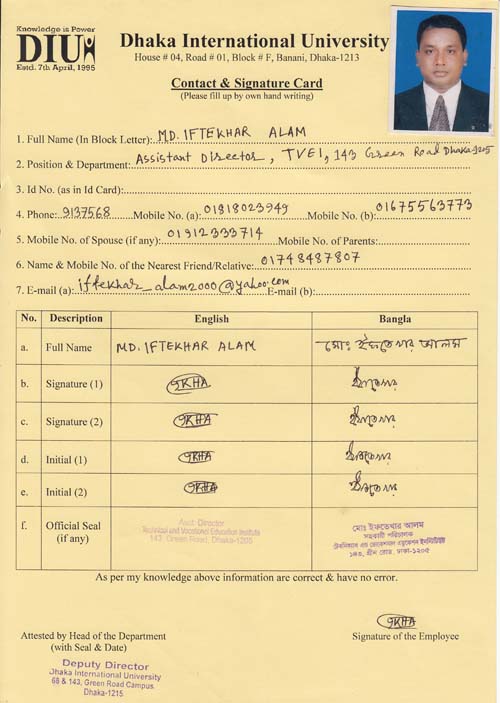 Knowledge is Power
DIU
Estd. 7th April, 1995
Dhaka International University
House # 04, Road # 01, Block # F, Banani, Dhaka-1213
Contact & Signature Card
(Please fill up by own hand writing)
1. Full Name (In Block Letter): MD. IFTEKHAR ALAM
2. Position & Department: Assistant Director, TVEI, 143 Green Road Dhaka-1205
3. Id No. (as in Id Card):
4. Phone: 9137568 Mobile No. (a): 01818023949 Mobile No. (b): 01675563773
5. Mobile No. of Spouse (if any): 01912333714 Mobile No. of Parents:
6. Name & Mobile No. of the Nearest Friend/Relative: 01748487807
7. E-mail (a): iftekhar_alam2000@yahoo.com E-mail (b):
No. Description English Bangla
a. Full Name MD. IFTEKHAR ALAM মোঃ ইফতেখার আলম
b. Signature (1) ইফতেখার
c. Signature (2) ইফতেখার
d. Initial (1) ইফতেখার
e. Initial (2) ইফতেখার
f. Official Seal (if any)
Asst. Director
Technical and Vocational Education Institute
143, Green Road, Dhaka-1205
মোঃ ইফতেখার আলম
সহকারী পরিচালক
টেকনিক্যাল এন্ড ভোকেশনাল এডুকেশন ইনস্টিটিউট
১৪৩, গ্রীন রোড, ঢাকা-১২০৫
As per my knowledge above information are correct & have no error.
Attested by Head of the Department
(with Seal & Date)
Signature of the Employee
Deputy Director
Dhaka International University
68 & 143, Green Road Campus
Dhaka-1215